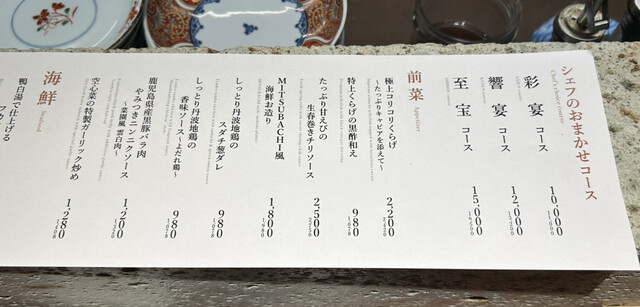 シェフのおまかせコース
Chef's choice course
彩宴 コース
10,000
11,000
饗宴 コース
12,000
13,200
至宝 コース
15,000
16,500
前菜
Appetizer
極上コリコリくらげ
〜たっぷりキャビアを添えて〜
2,200
2,420
特上くらげの黒酢和え
980
1,078
たっぷり甘えびの
生春巻きチリソース
2,500
2,750
MITSUBACHI風
海鮮お造り
1,800
1,980
しっとり丹波地鶏の
スダチ葱ダレ
980
1,078
しっとり丹波地鶏の
香味ソース〜よだれ鶏〜
980
1,078
鹿児島県産黒豚バラ肉
やみつきニンニクソース
〜菜園風 雲白肉〜
1,200
1,320
空心菜の特製ガーリック炒め
1,280
1,408
海鮮
Seafood
鴨白湯で仕上げる